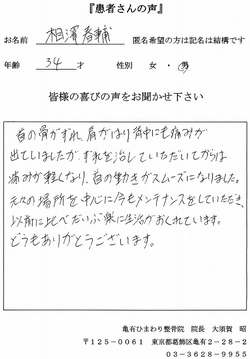 『患者さんの声』
お名前 相澤春輔 匿名希望の方は記名は結構です
年齢 34 才 性別 女・男
皆様の喜びの声をお聞かせ下さい
首の骨がずれ、肩がはり背中にも痛みが
出ていましたが、ずれを治していただいてからは
痛みが軽くなり、首の動きがスムーズになりました。
元々の場所を中心に今もメンテナンスをしていただき、
以前に比べだいぶ楽に生活がおくれています。
どうもありがとうございます。
亀有ひまわり整骨院 院長 大須賀 昭
〒125-0061 東京都葛飾区亀有2-28-2
03-3628-9955